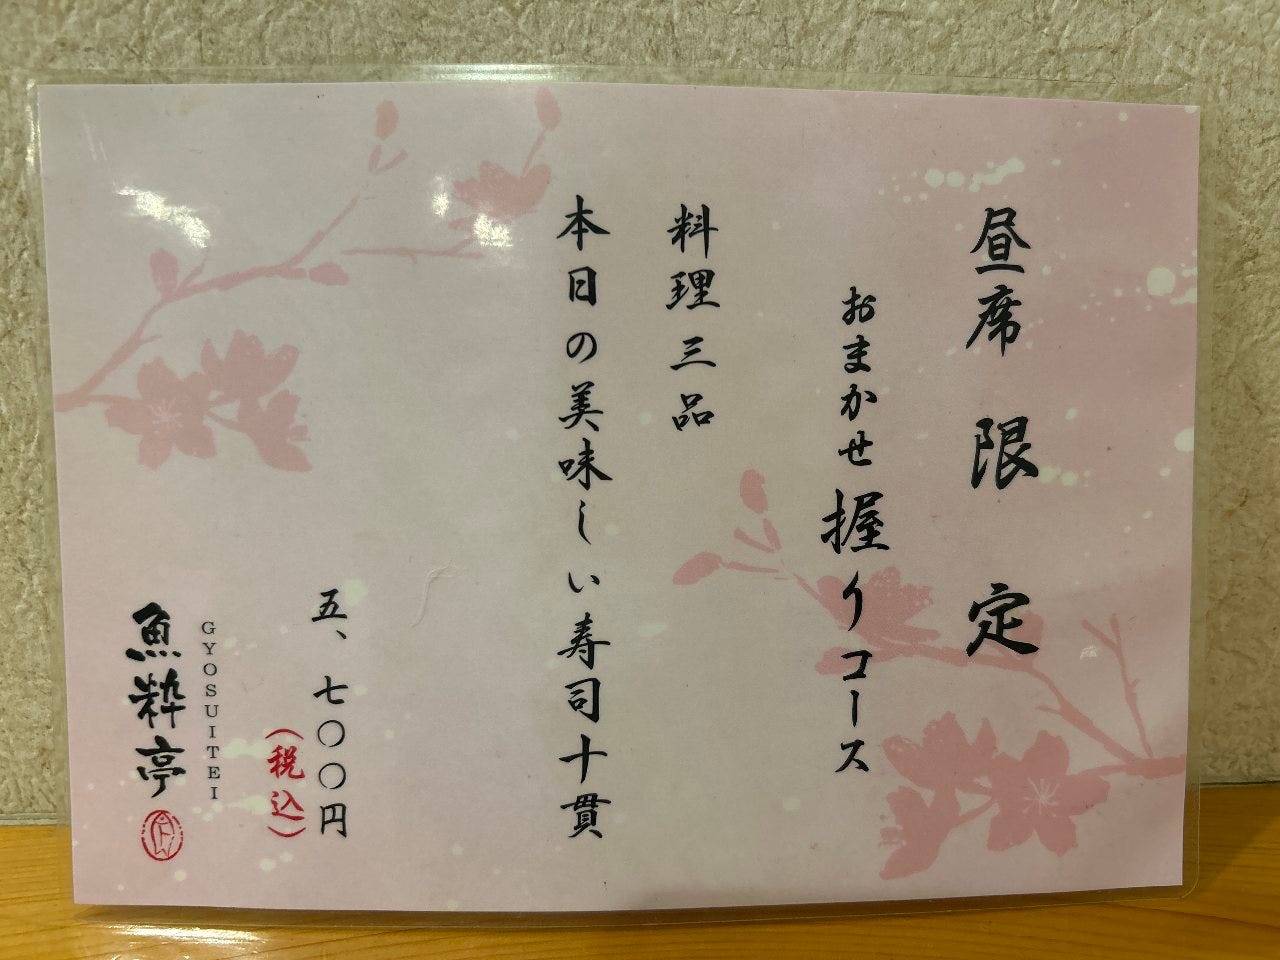 昼席限定
おまかせ握りコース
料理三品
本日の美味しい寿司十貫
五、七〇〇円
(税込)
GYOSUITEI
魚粋亭